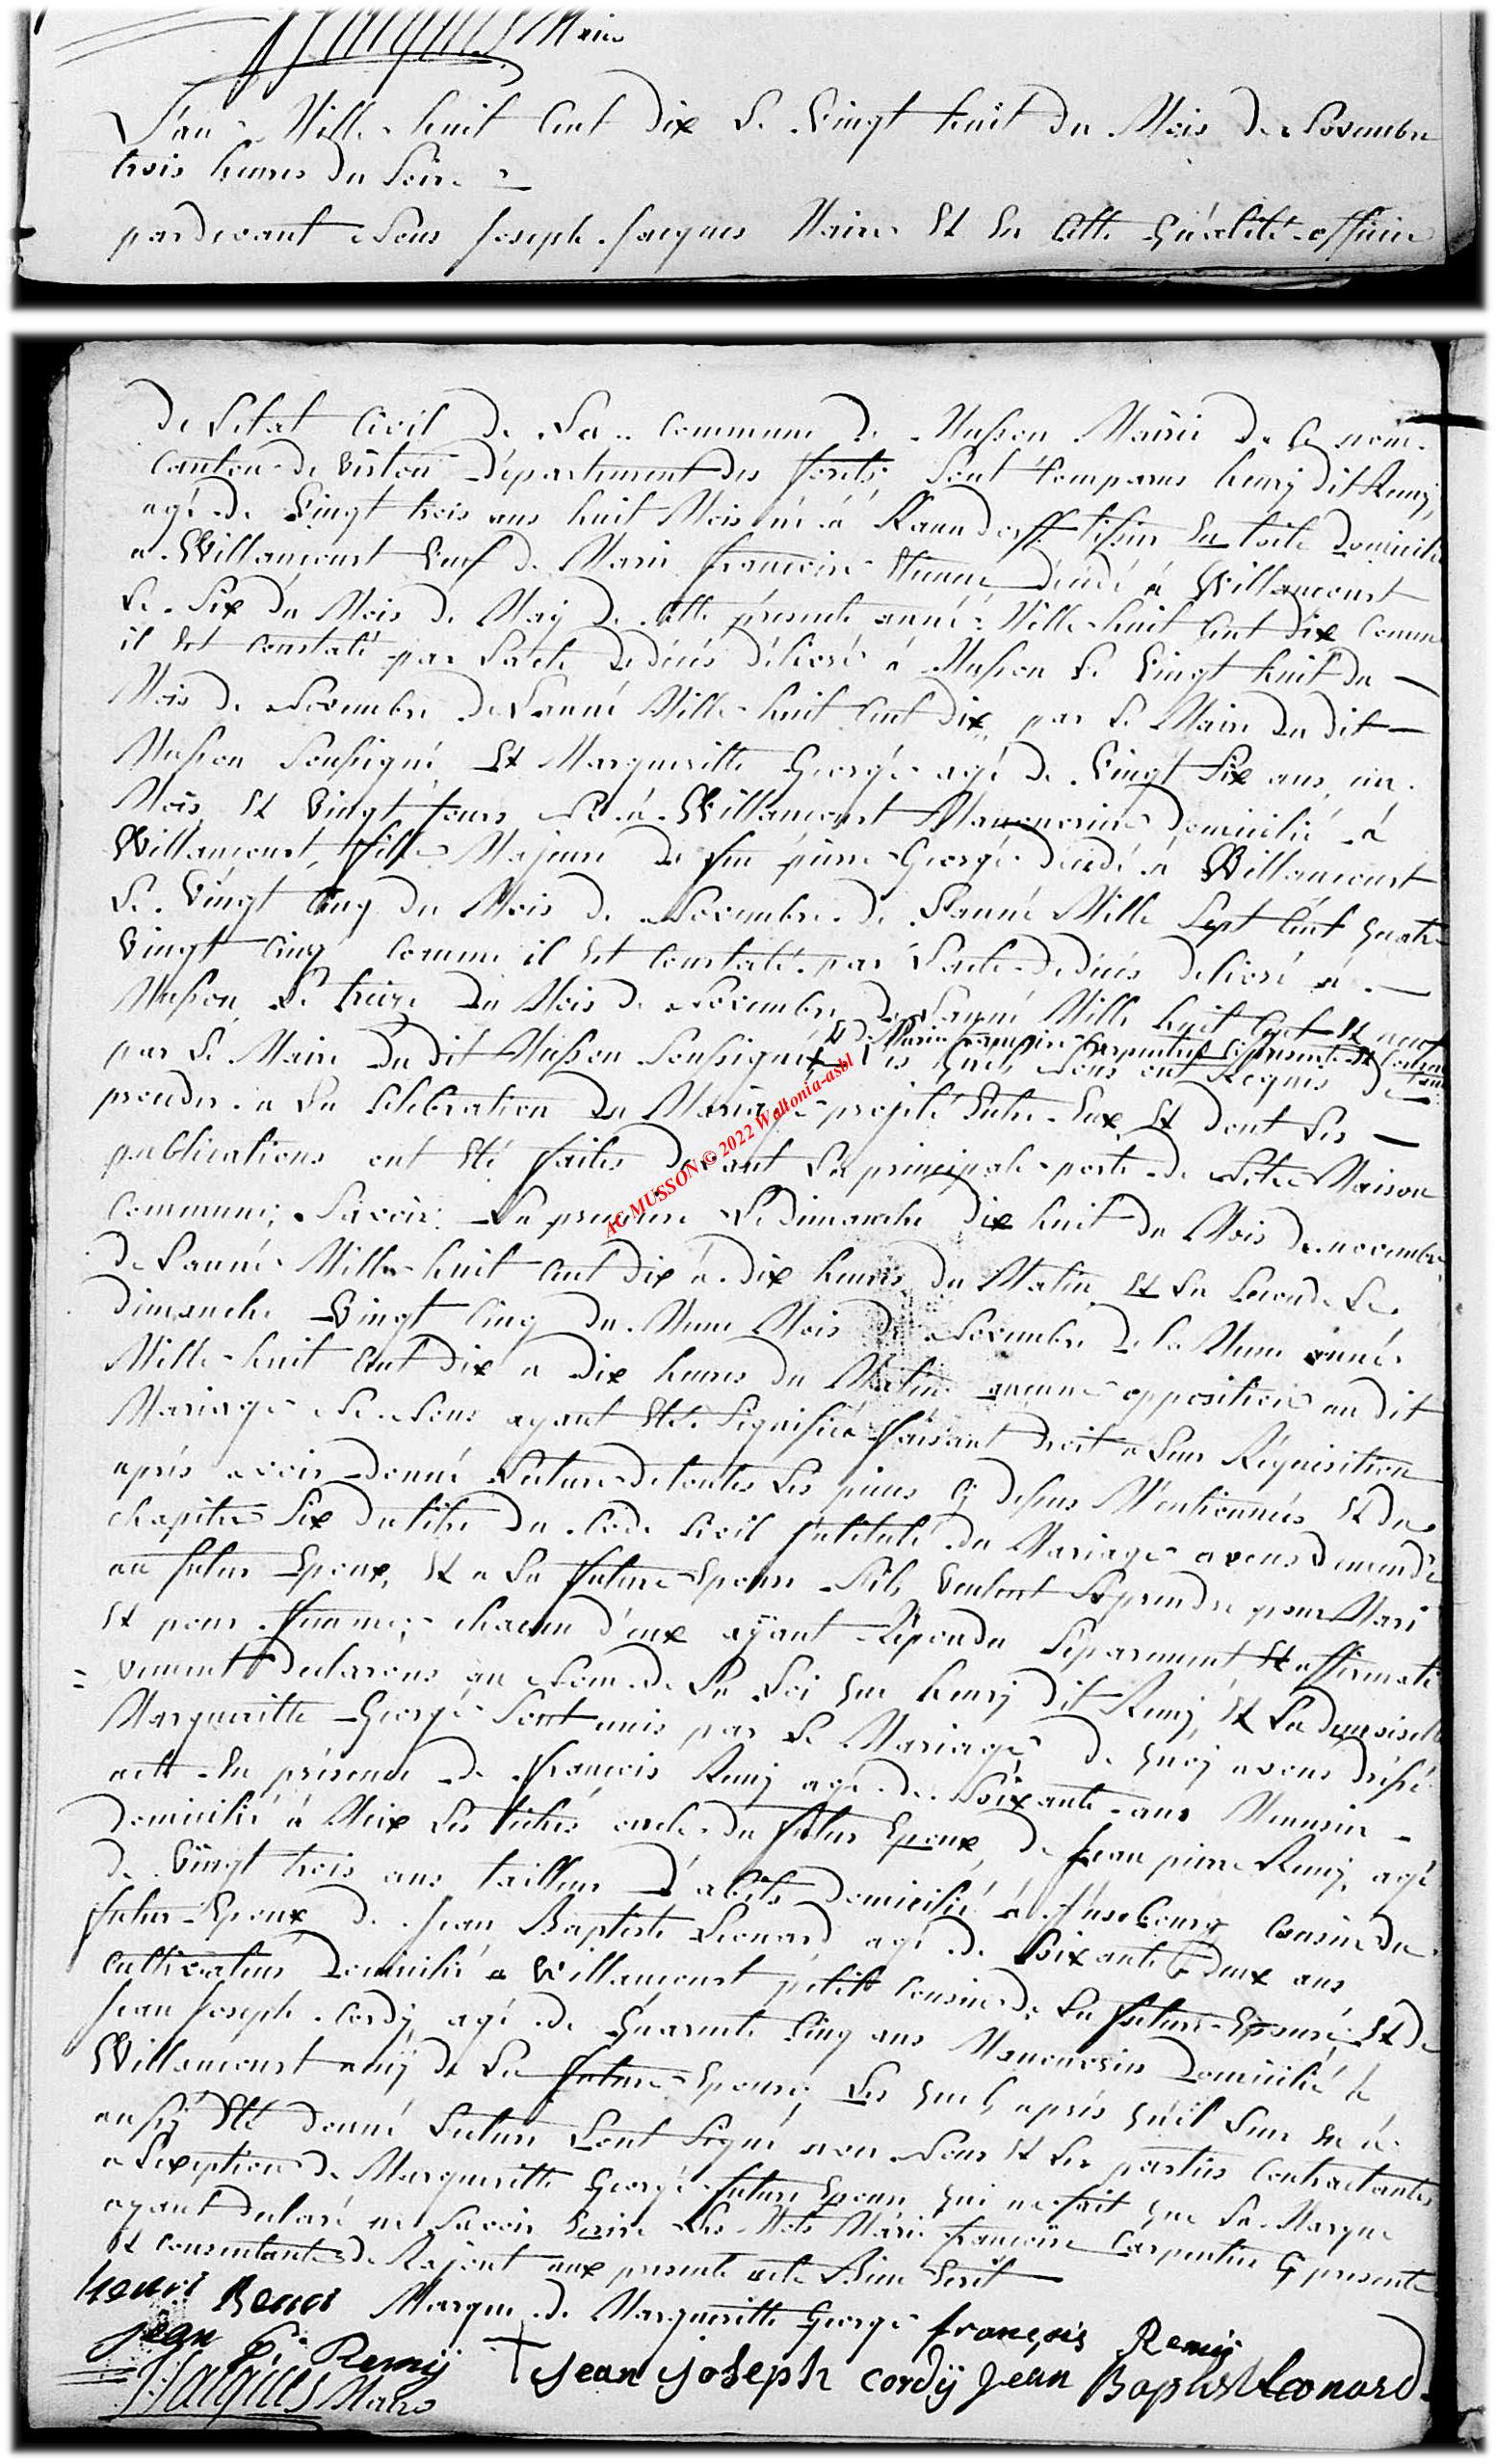 Jacques Maire
L'an Mille huit Cent dix Le Vingt huit du Mois de Novembre
trois heures du Soir
pardevant Nous Joseph Jacques Maire Et En Cette Quéalité officier
de L'etat Civil de La Commune de Musson Mairie de Ce nom
Canton de Virton département des forêts Sont Comparus henrij dit Remij
agé de Vingt trois ans huit Mois né à tissin En toile Domicilié
a Willancourt Veuf de Marie françoise Etienne décédé à Willancourt
Le Six du Mois de Maij de Cette présente année Mille huit Cent dix Comme
il Est Constaté par L'acte de décès délivré à Musson Le Vingt huit du
Mois de Novembre de L'année Mille huit Cent dix par Le Maire du dit
Musson Soussigné, Et Margueritte Georgé agé de Vingt Six ans, un
Mois, Et Vingt Jours Né à Willancourt Manouvrine domicilié à
Willancourt, fille Majeure de feu pierre Georgé décédé à Willancourt
Le Vingt Cinq du Mois de Novembre de L'année Mille Sept Cent quatre
Vingt Cinq Comme il Est Constaté par L'acte de décès délivré à
Musson Le treize du Mois de Novembre de L'année Mille huit Cent Et neuf
Et de Marie françoise Carpentier Cij presente Et Consentante
par Le Maire du dit Musson Soussigné Les quels Nous ont Requis de
proceder a La Celebration du Mariage projeté Entre Eux, Et dont Les
publications ont Eté faites devant La principale porte de Notre Maison
Commune; Savoir: La premiere Le dimanche dix huit du Mois de novembre
de L'année Mille huit Cent dix à dix heures du Matin Et La Seconde Le
dimanche Vingt Cinq du Meme Mois de Novembre de La Meme année
Mille huit Cent dix a dix heures du Matin aucune opposition au dit
Mariage Ne Nous ayant Eté Signifiée faisant droit a Leur Réquisition
après avoir donné Lecture de toutes Les pieces Cij dessus Mentionnées Et du
chapitre Six du titre du Code Civil Intitulé du Mariage avons demandé
au futur Epoux, Et a La future Epouse S'ils Veulent Se prendre pour Mari
Et pour femme; chacun d'eux aÿant Répondu Séparement Et affirmati
=vement declarons au Nom de La Loi que henrij dit Remij, Et La demoiselle
Margueritte Georgé Sont unis par Le Mariage, de quoij avons dressé
acte En présence de françois Remij agé de Soixante ans Menusin
Domicilié à Meix Les tiches oncle du futur Epoux, de Jean pierre Remij, agé
de Vingt trois ans tailleur d'abits domicilié à Cousin du
futur Epoux, de Jean Baptiste Leonard agé de Soixante deux ans
Cultivateur Domicilié a Willancourt petit Cousin de La future Epouse, Et de
Jean Joseph Cordÿ agé de Quarente Cinq ans Manouvrin Domicilié à
Willancourt amij de La future Epouse; Les quels après qu'il Leur En a
aussij Eté donné Lecture L'ont Signé avec Nous Et Les parties Contractantes
a L'exception de Margueritte Georgé future Epouse qui ne fait que Sa Marque
ayant declaré ne Savoir Ecrire Les Mots Marie françoise Carpentier Cij presente
Et Consentante de Rajout aux presente acte Bien Ecrit
henri Remi Marque de Margueritte Georgé françois Remij
jean P. Remij + Jean joseph Cordÿ Jean Baptist Leonard
J Jacques Maire
AC MUSSON © 2022 Waltonia-asbl